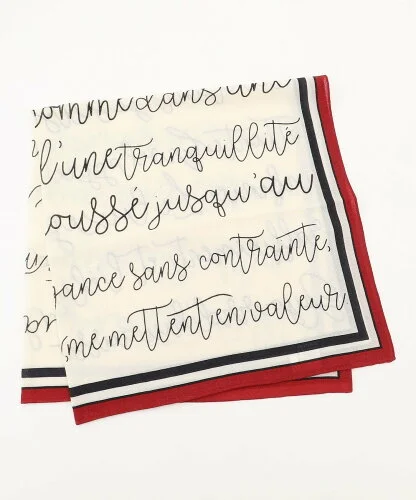 comme dans une
d'une tranquillité
oussé jusqu'au
rance sans contrainte,
me mettent en valeur